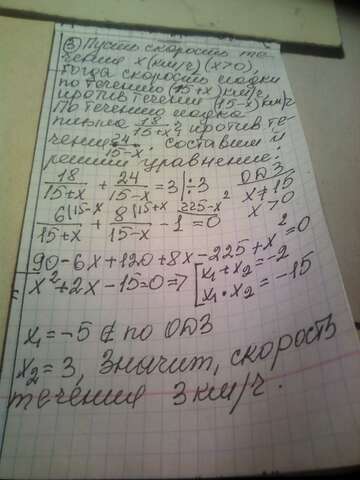 ③ Пусть скорость те-
чения x(км/ч) (x>0),
тогда скорость лодки
по течению (15+x)км/ч,
против течения (15-x)км/ч
По течению лодка
плыла 18/15+x ч, против те-
чения 24/15-x. Составим и
решим уравнение:
18/15+x + 24/15-x = 3 | ÷3 ОДЗ
x≠15
x>0
6(15-x/15+x + 8(15+x/15-x - 1 225-x² = 0
90-6x+120+8x-225+x²=0
x²+2x-15=0 => [x₁+x₂=-2
x₁·x₂=-15
x₁=-5 ∉ по ОДЗ
x₂=3, значит, скорость
течения 3 км/ч.